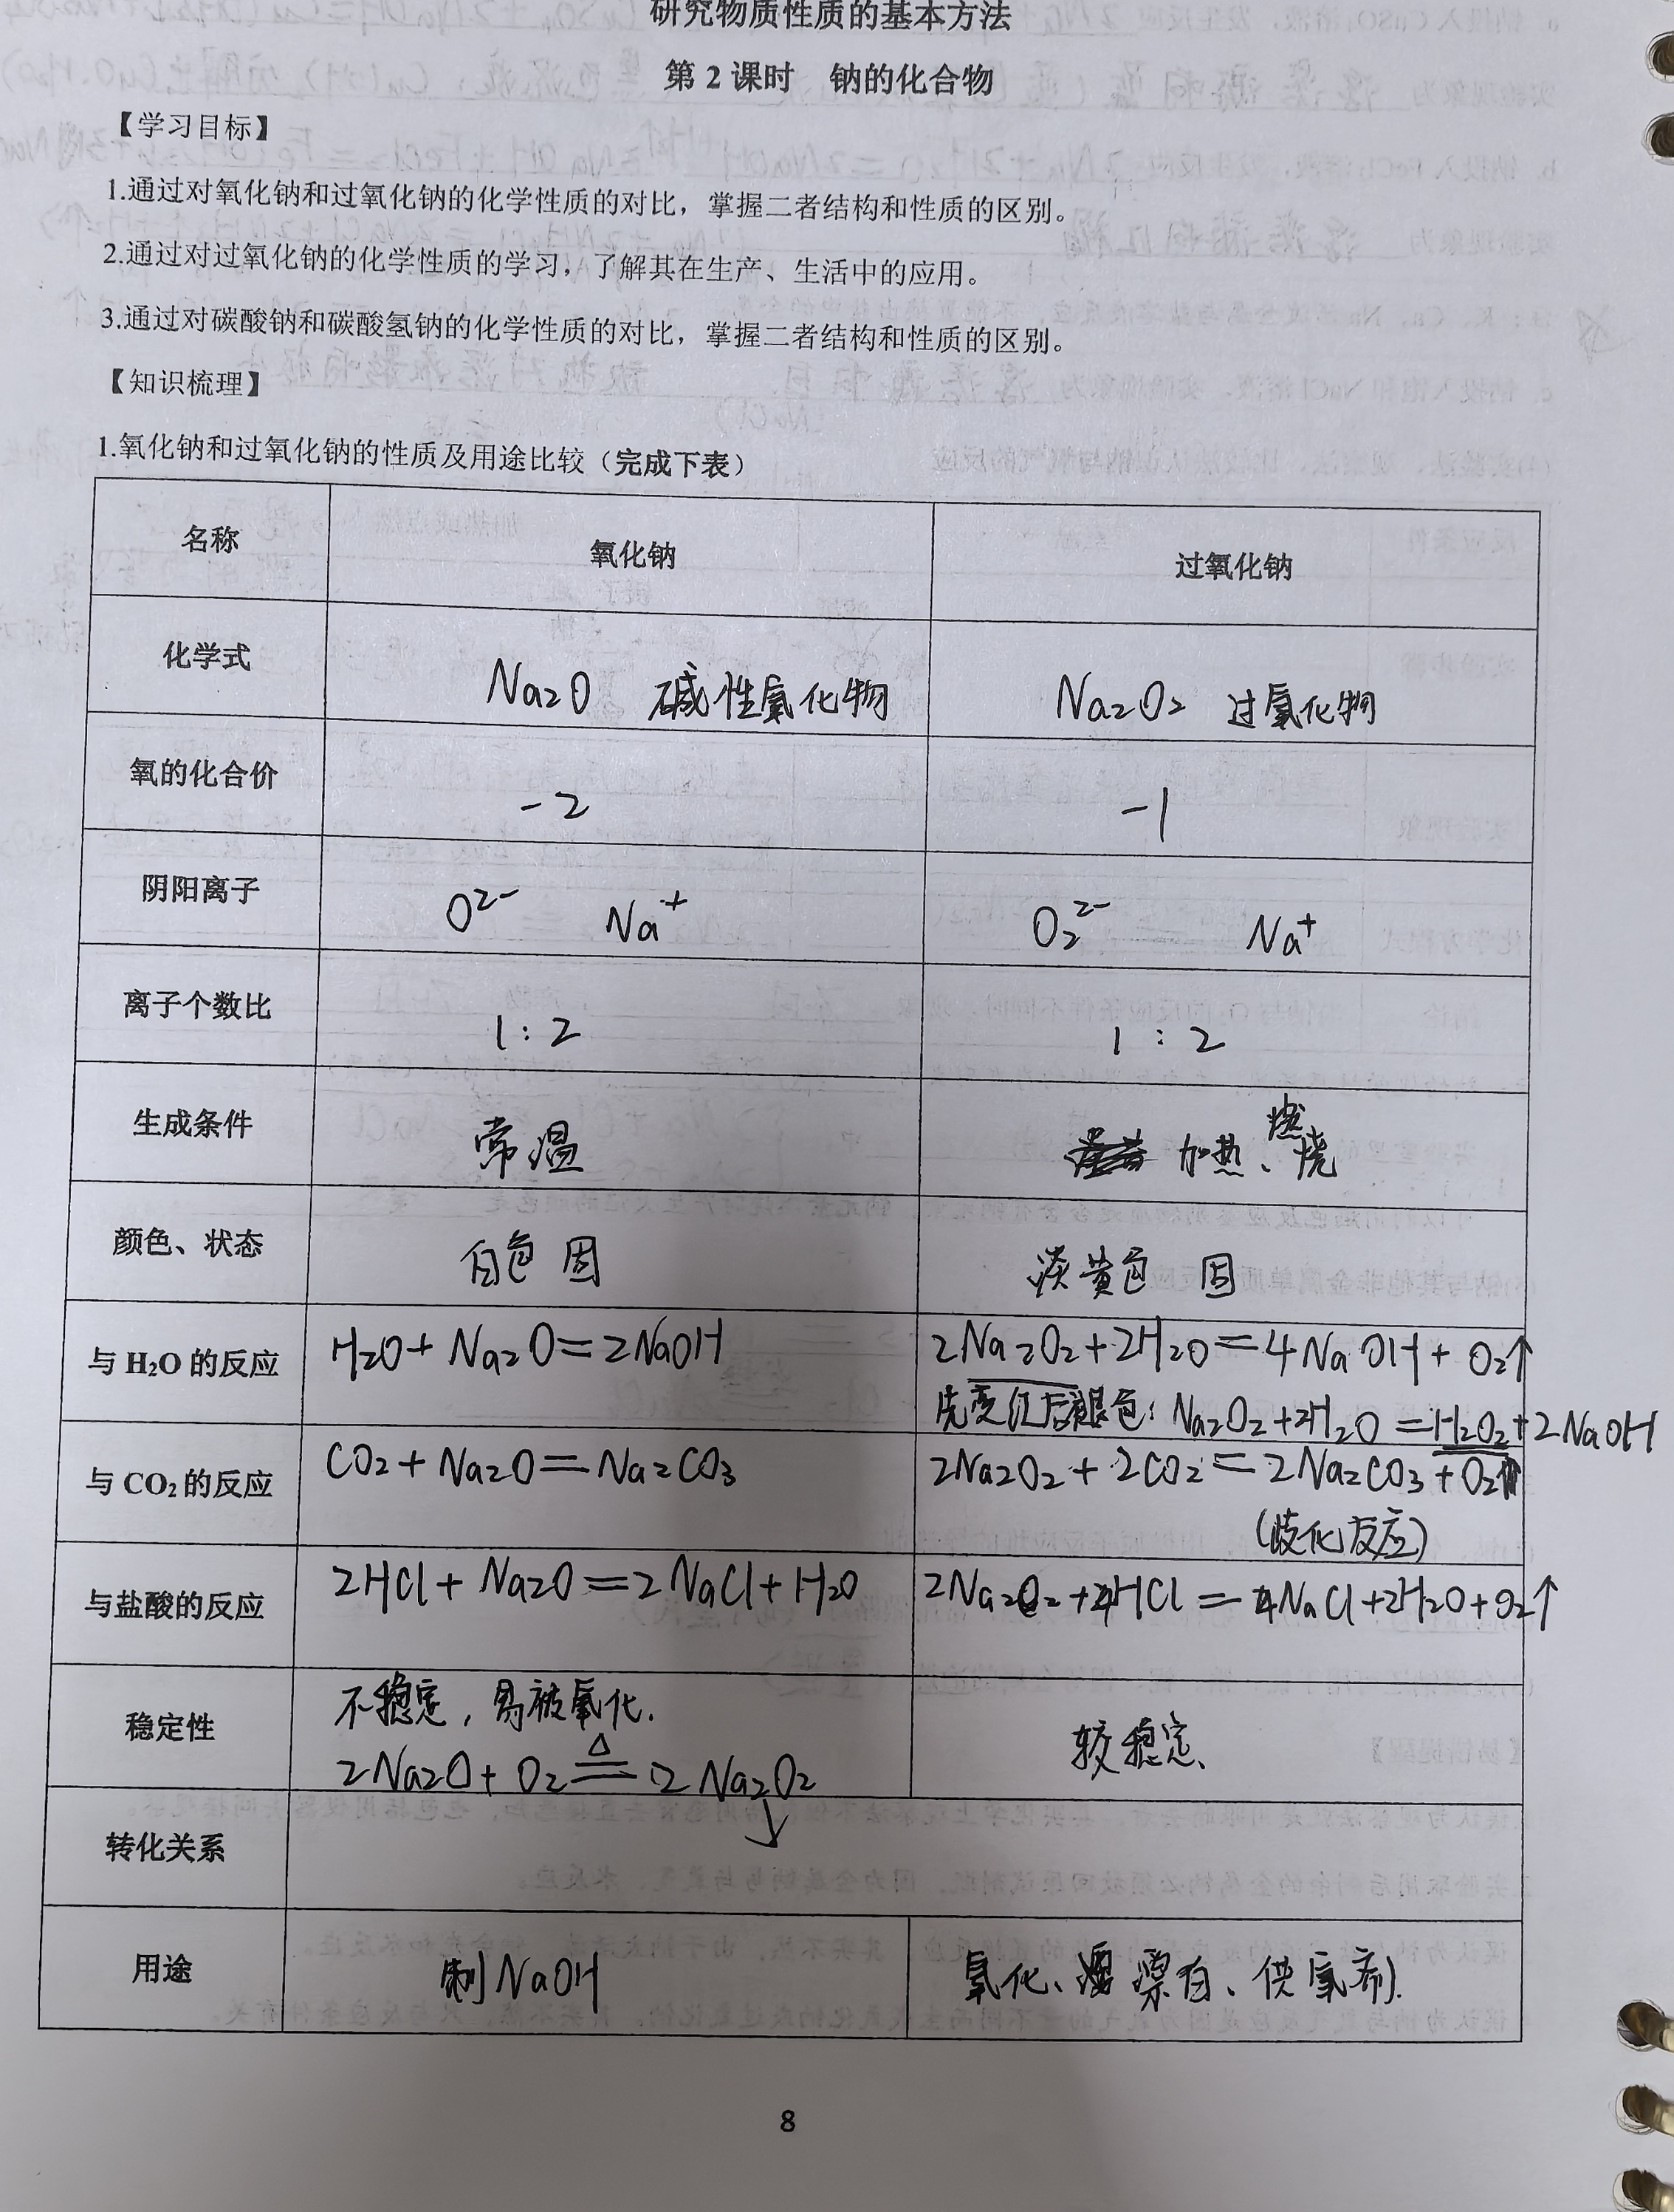 研究物质性质的基本方法
第 2 课时 钠的化合物
【学习目标】
1.通过对氧化钠和过氧化钠的化学性质的对比，掌握二者结构和性质的区别。
2.通过对过氧化钠的化学性质的学习，了解其在生产、生活中的应用。
3.通过对碳酸钠和碳酸氢钠的化学性质的对比，掌握二者结构和性质的区别。
【知识梳理】
1.氧化钠和过氧化钠的性质及用途比较（完成下表）
名称 氧化钠 过氧化钠
化学式 Na₂O 碱性氧化物 Na₂O₂ 过氧化物
氧的化合价 -2 -1
阴阳离子 O²⁻ Na⁺ O₂²⁻ Na⁺
离子个数比 1:2 1:2
生成条件 常温 加热、燃烧
颜色、状态 白色 固 淡黄色 固
与 H₂O 的反应 H₂O+Na₂O=2NaOH 2Na₂O₂+2H₂O=4NaOH+O₂↑
先变红后褪色: Na₂O₂+2H₂O=H₂O₂+2NaOH
与 CO₂ 的反应 CO₂+Na₂O=Na₂CO₃ 2Na₂O₂+2CO₂=2Na₂CO₃+O₂
(歧化反应)
与盐酸的反应 2HCl+Na₂O=2NaCl+H₂O 2Na₂O₂+4HCl=4NaCl+2H₂O+O₂↑
稳定性 不稳定，易被氧化. 较稳定、
2Na₂O+O₂ ≜ 2Na₂O₂
转化关系
用途 制NaOH 氧化、漂白、供氧剂.
8